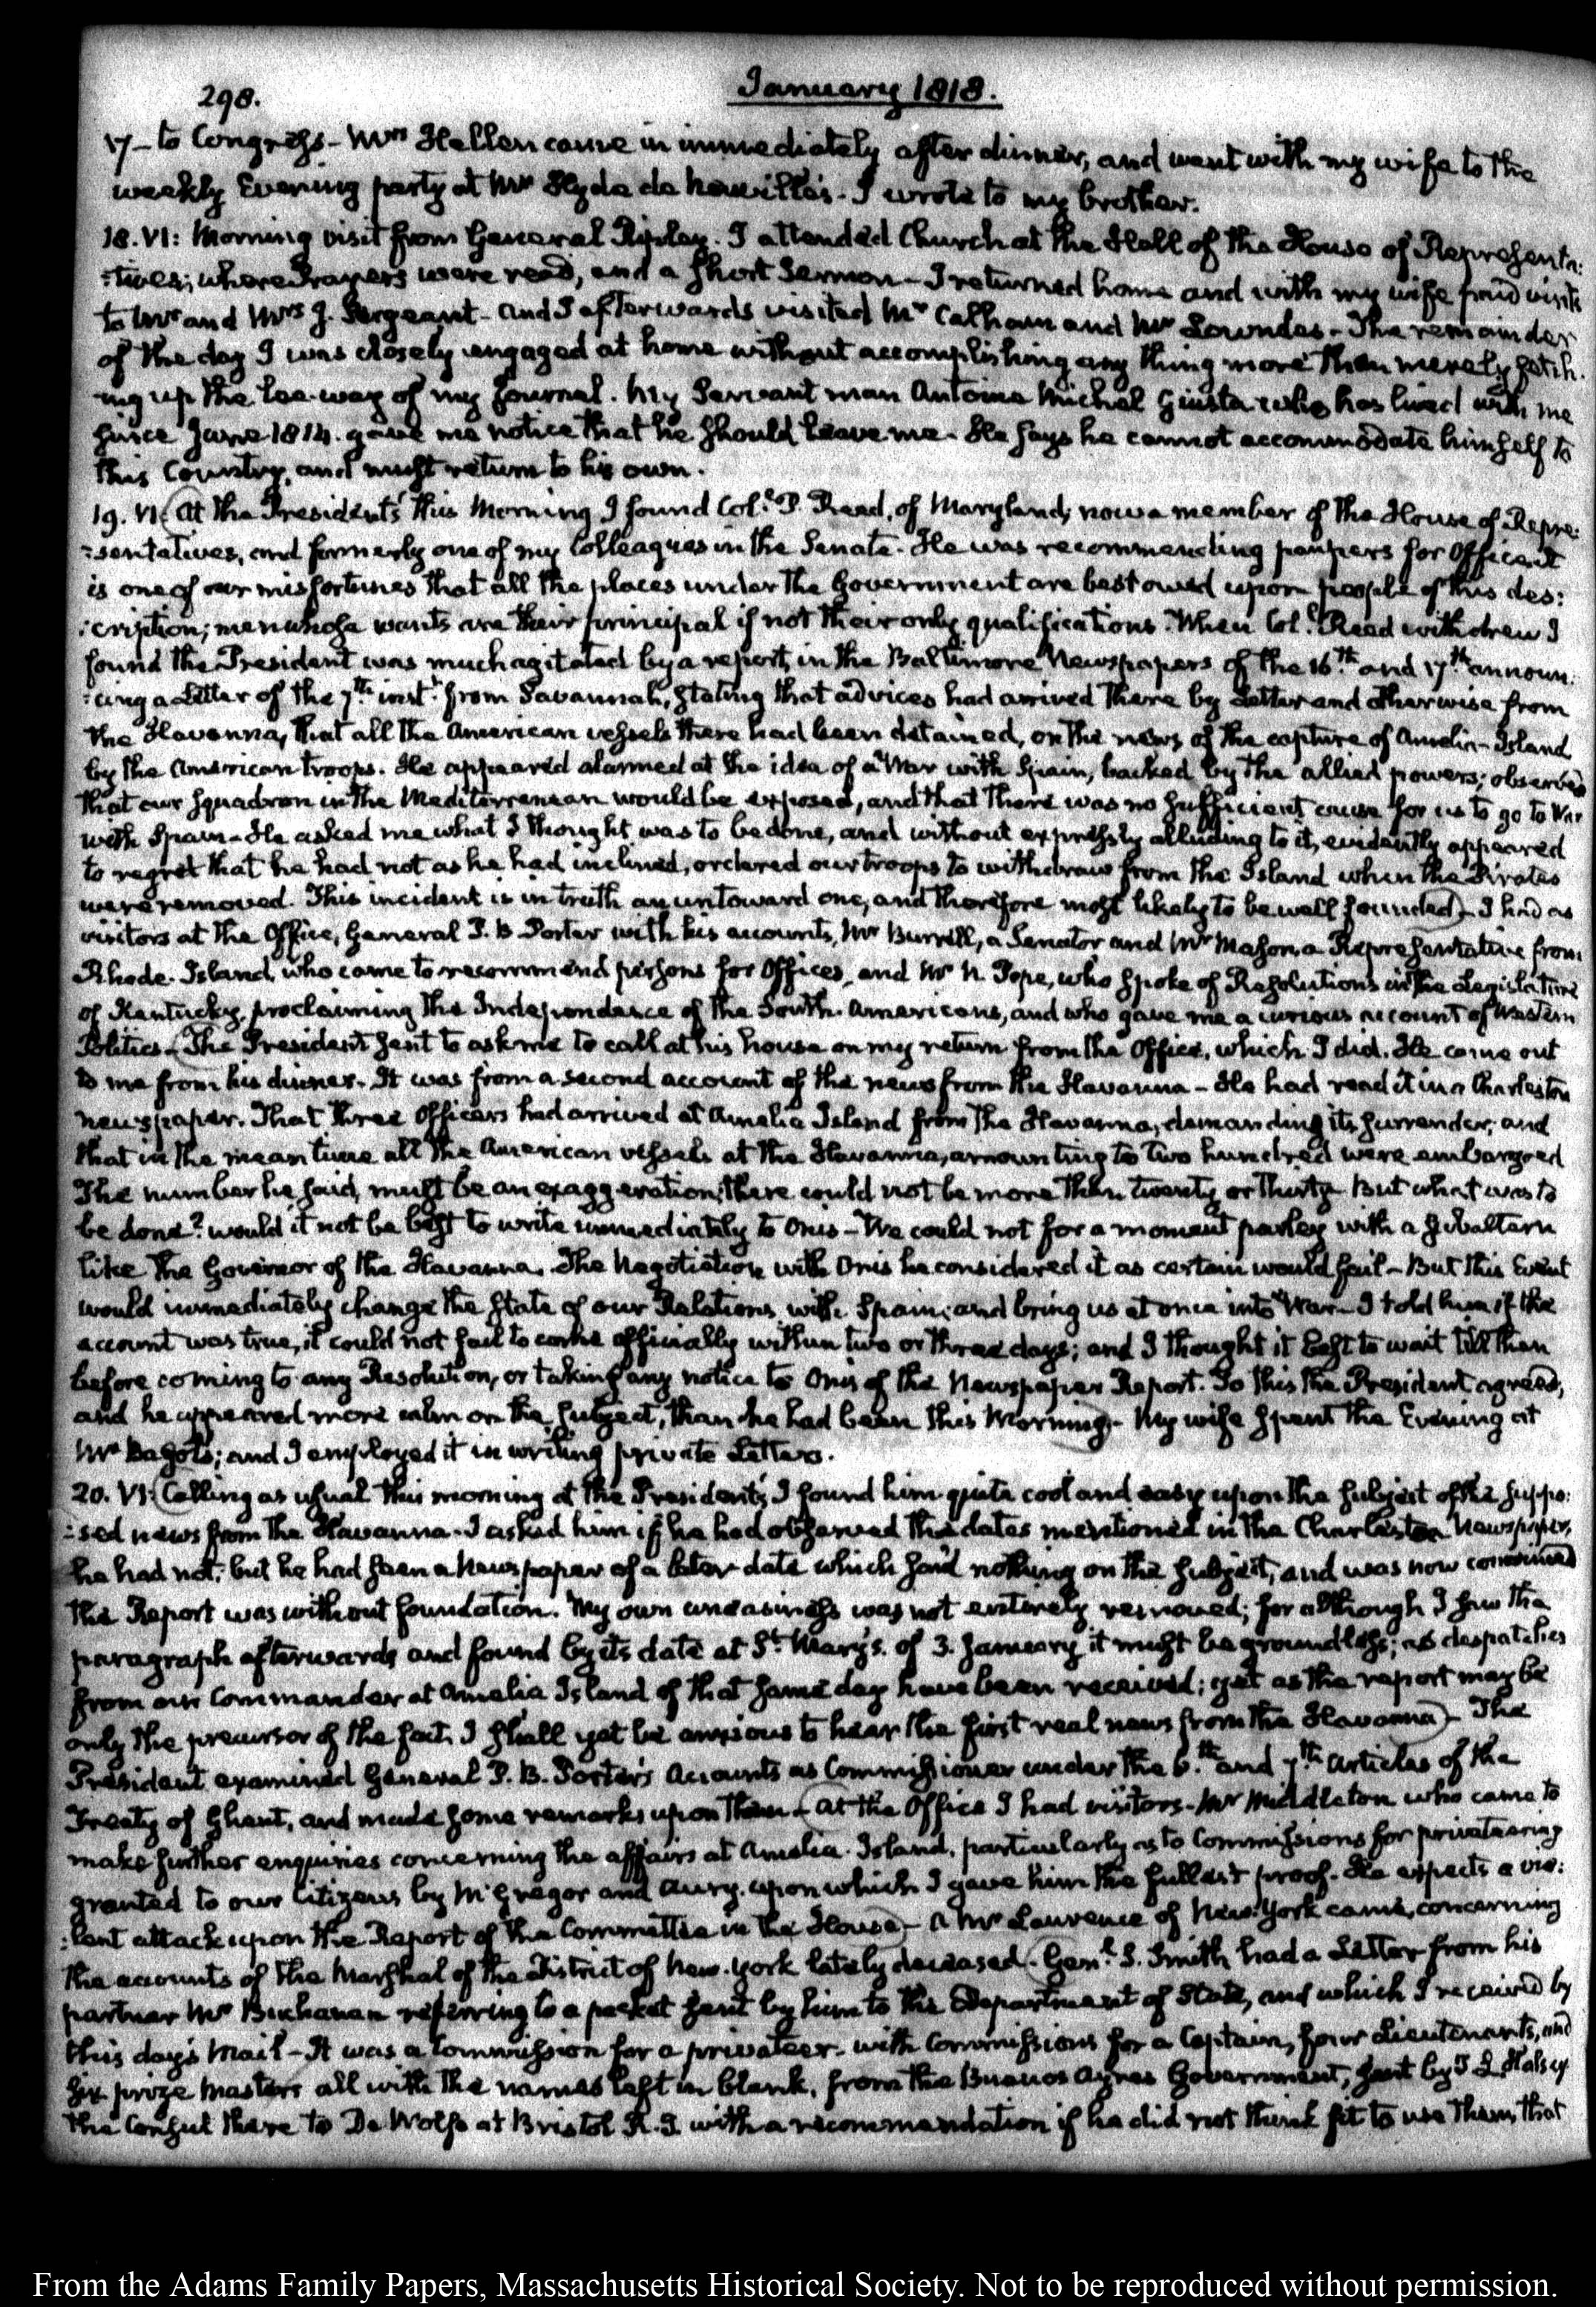 298.
January 1818.
17 - to Congress - Mrs Hellen came in immediately after dinner, and went with my wife to the
weekly Evening party at Mr Hyde de Neuville's. I wrote to my brother.
18. VI: Morning visit from General Ripley. I attended Church at the Hall of the House of Representa:
:tives; where Prayers were read, and a short Sermon - I returned home and with my wife paid visits
to Mr and Mrs J. Sergeant - and I afterwards visited Mr Calhoun and Mr Lowndes - The remainder
of the day I was closely engaged at home without accomplishing any thing more than merely fetch:
ing up the lee-way of my Journal. My Servant man Antoine Michel Giusta who has lived with me
since June 1814. gave me notice that he should leave me - He says he cannot accommodate himself to
this Country, and must return to his own.
19. VI. At the President's this Morning I found Col. P. Reed, of Maryland, now a member of the House of Repre:
:sentatives, and formerly one of my Colleagues in the Senate. He was recommending paupers for Office. It
is one of our misfortunes that all the places under the Government are bestowed upon people of this des:
:cription; men whose wants are their principal if not their only qualifications. When Col. Reed withdrew I
found the President was much agitated by a report, in the Baltimore Newspapers of the 16th and 17th announ:
:cing a Letter of the 7th inst. from Savannah, stating that advices had arrived there by Letter and otherwise from
the Havanna, that all the American vessels there had been detained, on the news of the capture of Amelia-Island
by the American troops. He appeared alarmed at the idea of a War with Spain, backed by the allied powers; observed
that our squadron in the Mediterranean would be exposed, and that there was no sufficient cause for us to go to War
with Spain - He asked me what I thought was to be done, and without expressly alluding to it, evidently appeared
to regret that he had not as he had inclined, ordered our troops to withdraw from the Island when the Pirates
were removed. This incident is in truth an untoward one, and therefore most likely to be well founded - I had as
visitors at the Office, General P. B Porter with his accounts, Mr Burrill, a Senator and Mr Mason, a Representative from
Rhode-Island, who came to recommend persons for Offices, and Mr N. Pope, who spoke of Resolutions in the Legislature
of Kentucky, proclaiming the Independence of the South-Americans, and who gave me a curious account of Western
Politics - The President sent to ask me to call at his house on my return from the Office, which I did. He came out
to me from his dinner. It was from a second account of the news from the Havanna - He had read it in a Charleston
newspaper. That three Officers had arrived at Amelia Island from the Havanna, demanding its surrender, and
that in the mean time all the American vessels at the Havanna, amounting to two hundred were embargoed
The number he said, must be an exaggeration; there could not be more than twenty or thirty But what was to
be done? would it not be best to write immediately to Onis - We could not for a moment parley with a subaltern
like the Governor of the Havanna. The Negotiation with Onis he considered it as certain would fail - But this Event
would immediately change the state of our Relations with Spain; and bring us at once into War - I told him if the
account was true, it could not fail to come officially within two or three days; and I thought it best to wait till then
before coming to any Resolution, or taking any notice to Onis of the Newspaper Report. To this the President agreed,
and he appeared more calm on the subject, than he had been this Morning - My wife spent the Evening at
Mrs Bagot's; and I employed it in writing private Letters.
20. VI: Calling as usual this morning at the President's I found him quite cool and easy upon the subject of the suppo:
:sed news from the Havanna. I asked him if he had observed the dates mentioned in the Charleston Newspaper,
he had not; but he had seen a Newspaper of a later date which said nothing on the subject, and was now convinced
the Report was without foundation. My own uneasiness was not entirely removed; for although I saw the
paragraph afterwards and found by its date at St. Mary's. of 3. January, it must be groundless; as despatches
from our Commander at Amelia Island of that same day have been received; yet as the report may be
only the precursor of the fact, I shall yet be anxious to hear the first real news from the Havanna) - The
President examined General P. B. Porter's Accounts as Commissioner under the 6.th and 7.th Articles of the
Treaty of Ghent, and made some remarks upon them - (At the Office I had visitors - Mr Middleton who came to
make further enquiries concerning the affairs at Amelia-Island, particularly as to Commissions for privateering
granted to our Citizens by McGregor and Aury. upon which I gave him the fullest proof. He expects a vio:
:lent attack upon the Report of the Committee in the House) - a Mr Lawrence of New-York came, concerning
the accounts of the Marshal of the District of New-York lately deceased. (Genl. S. Smith had a Letter from his
partner Mr Buchanan referring to a packet sent by him to the Department of State, and which I received by
this day's Mail - It was a Commission for a privateer. with Commissions for a Captain, four Lieutenants, and
six prize Masters all with the names left in blank, from the Buenos Ayres Government, sent by T L Halsey
the Consul there to De Wolfe at Bristol R. I. with a recommendation if he did not think fit to use them, that
From the Adams Family Papers, Massachusetts Historical Society. Not to be reproduced without permission.